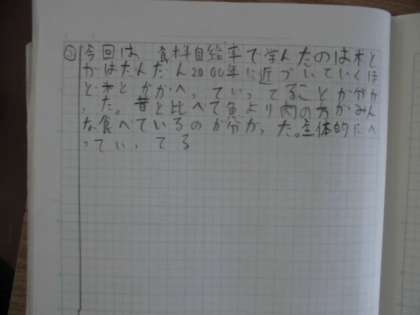 今回は、食料自給率で学んだのは米と
かはだんだん2000年に近づいていくほ
ど米とかがへっていってることが分か
った。昔と比べて魚より肉の方がみん
な食べているのが分かった。全体的にへ
っていってる